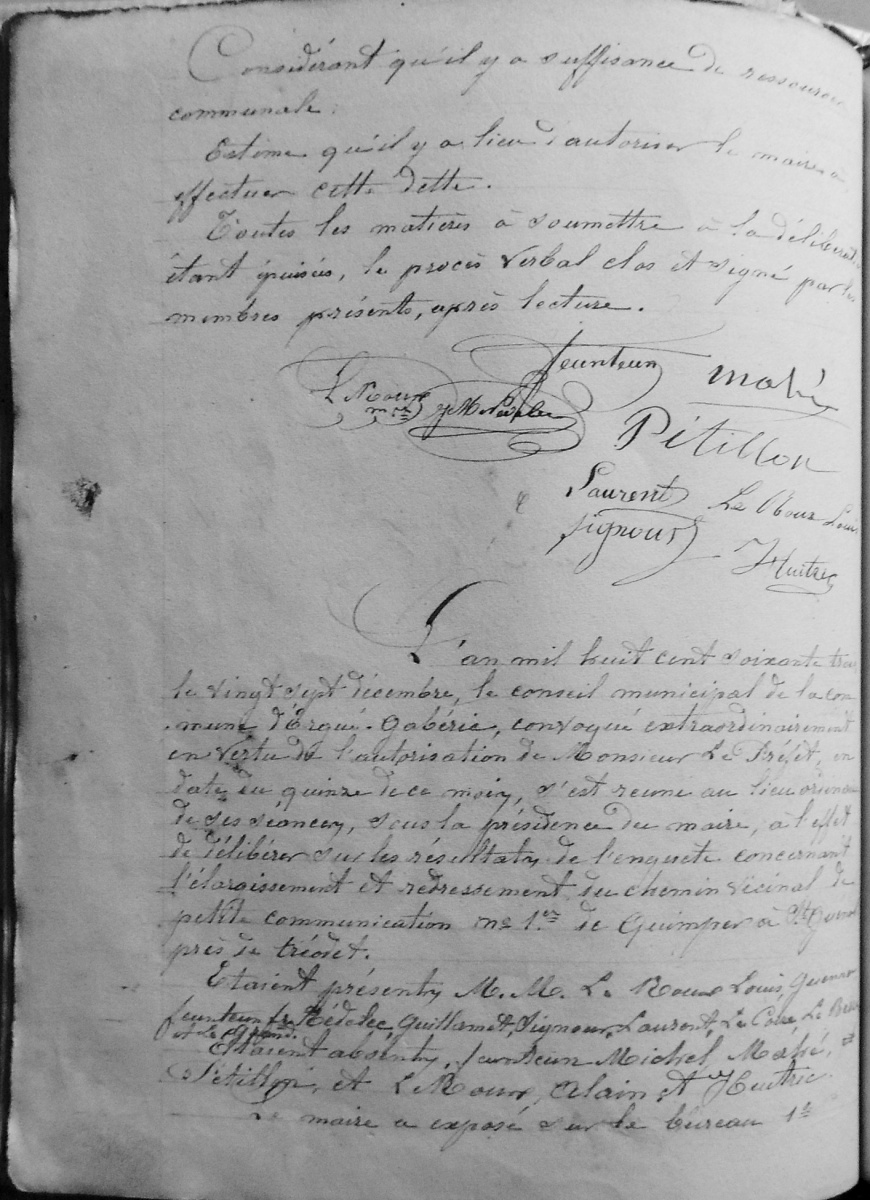 Considérant qu'il y a suffisance de ressources
communale.
Estime qu'il y a lieu d'autoriser le maire à
effectuer cette dette.
Toutes les matières à soumettre à la délibérat
étant épuisées, le procès verbal clos et signé par les
membres présents, après lecture.
feunteun Mahé
L Roux
Pétillon
Laurent Le Roux Louis
Signour Huitric
L'an mil huit cent soixante trois
le vingt sept décembre, le conseil municipal de la com
mune d'Ergué-Gabéric, convoqué extraordinairement
en vertu de l'autorisation de Monsieur Le Préfet, en
date du quinze de ce mois, s'est réuni au lieu ordinaire
de ses séances, sous la présidence du maire, à l'effet
de délibérer sur les résultats de l'enquete concernant
l'élargissement et redressement du chemin vicinal de
petite communication no 1er de Quimper à St Guénolé
près de tréodet.
Etaient présents M. M. Le Roux Louis,
feunteun fr, Rédélec, Guillamet, Signour, Laurent, Le Corre, Le
et Le Grand.
Etaient absents, feunteun Michel, Mahé,
Pétillon, et Le Roux, Alain et Huitric
Le maire a exposé sur le bureau 1e